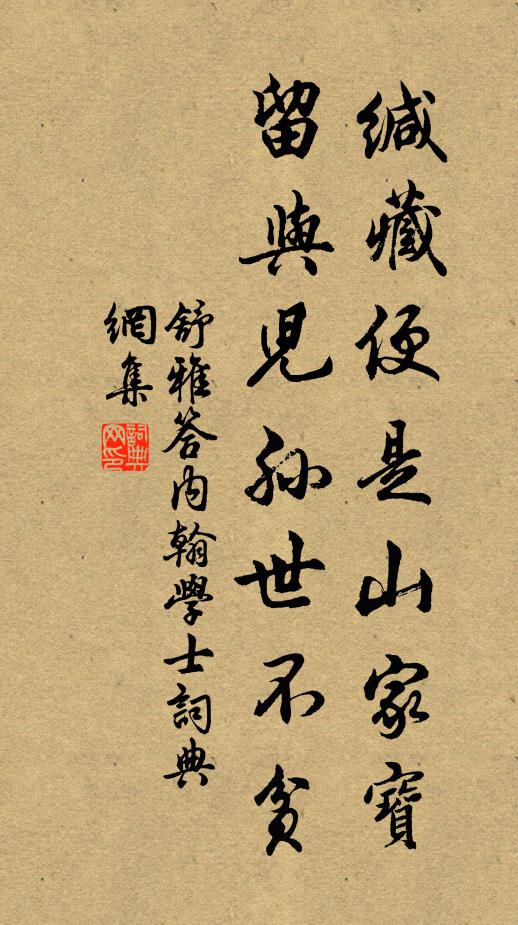 緘藏便是山家寶
留與兒孫世不貧
舒雅答内翰學士詞典
網集
詞典
网印